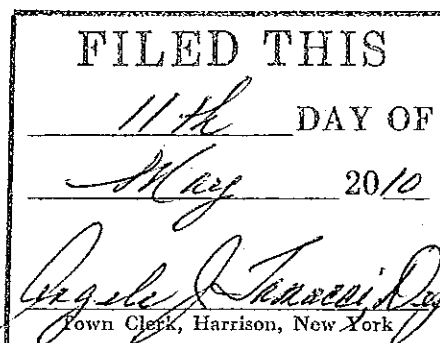 FILED THIS
11th DAY OF
2010
Angela J
Town Clerk, Harrison, New York